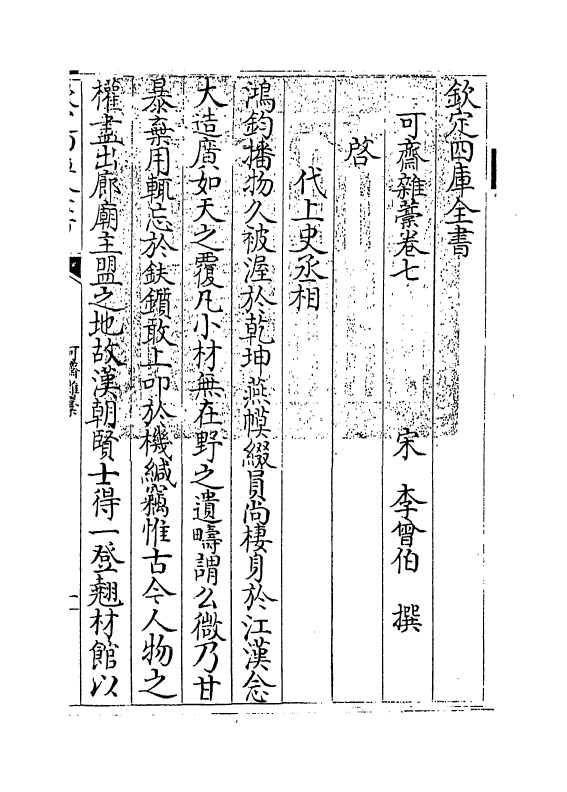 欽定四庫全書
可齋雜藁卷七
宋 李曾伯 撰
啓
代上史丞相
鴻鈞播物久被渥於乾坤燕幙綴員尚棲身於江漢念
大造廣如天之覆凡小材無在野之遺疇謂么微乃甘
暴棄用輒忘於鈇鑕敢上叩於機緘竊惟古今人物之
權盡出廊廟主盟之地故漢朝賢士得一登翹材館以
可齋雜藁